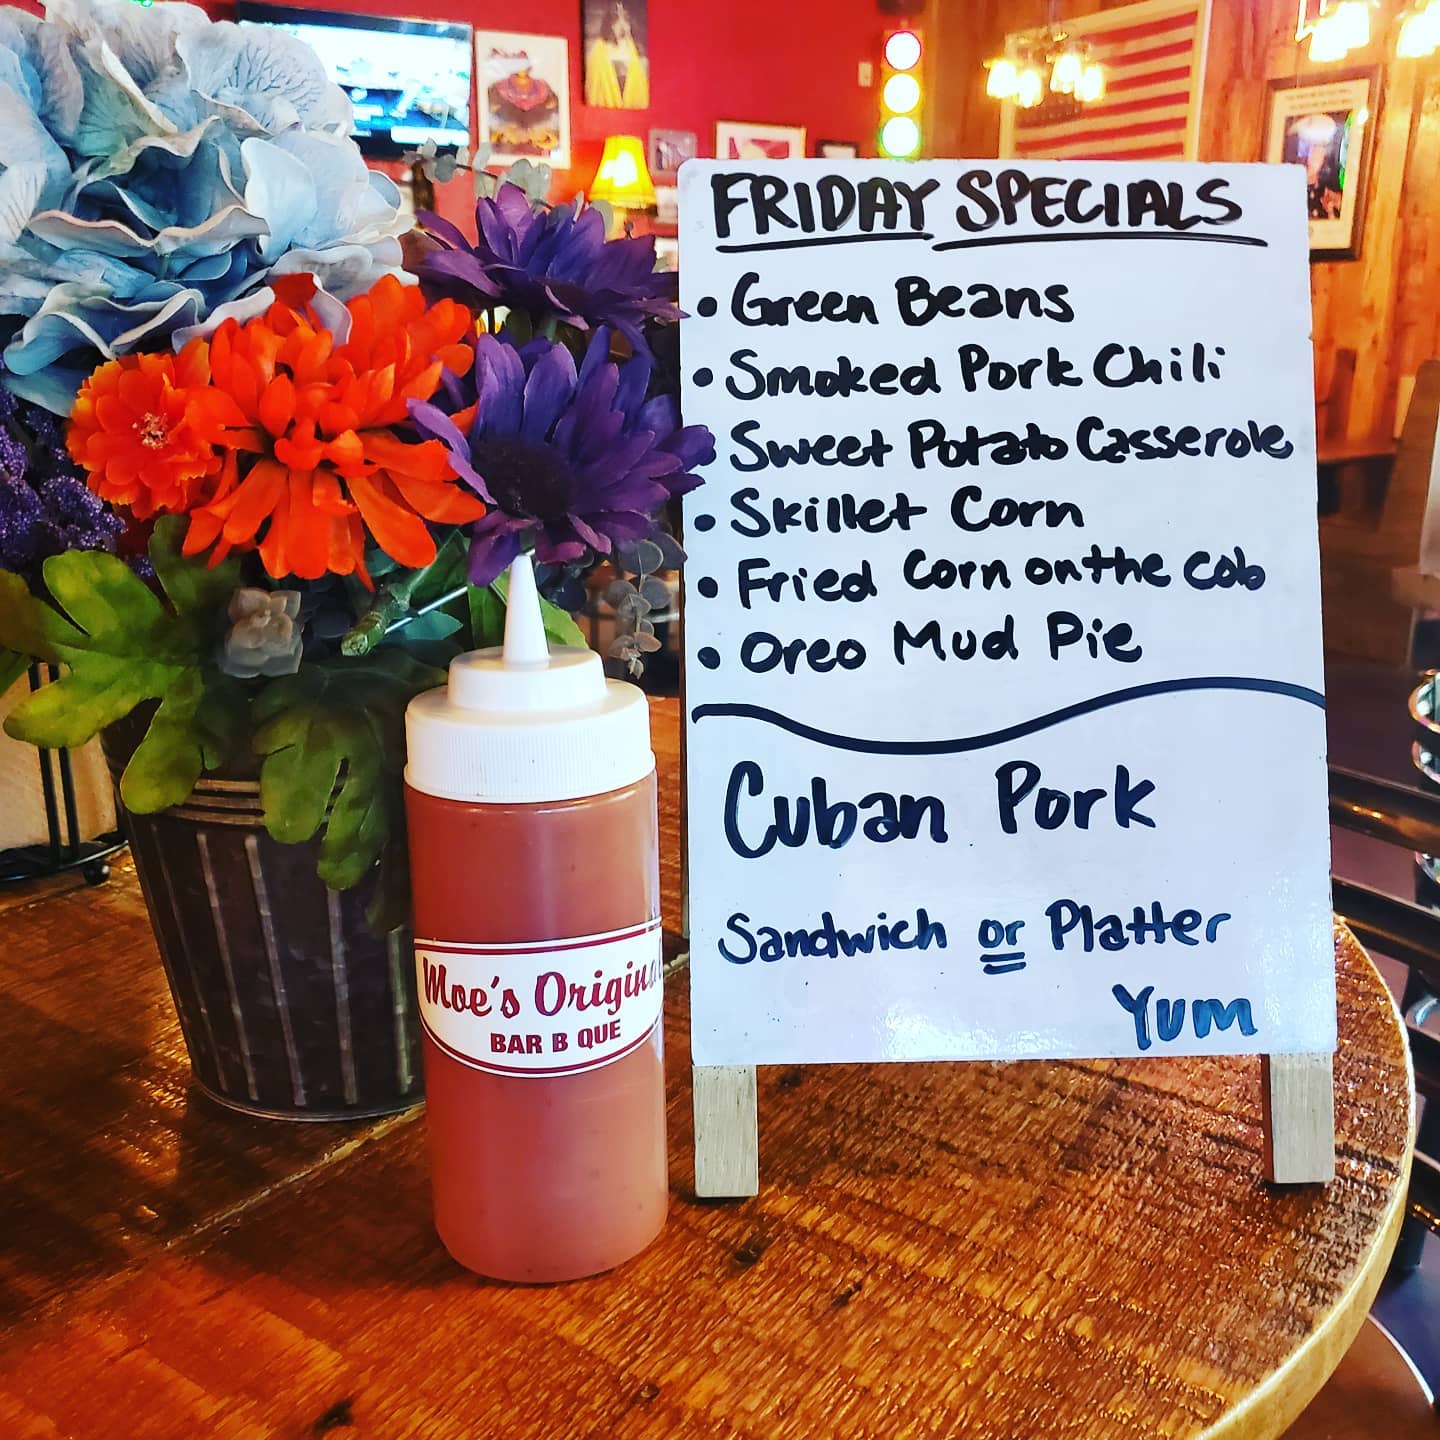 FRIDAY SPECIALS
• Green Beans
• Smoked Pork Chili
• Sweet Potato Casserole
• Skillet Corn
• Fried Corn on the cob
• Oreo Mud Pie
Cuban Pork
Sandwich or Platter
Yum
Moe's Original
BAR B QUE